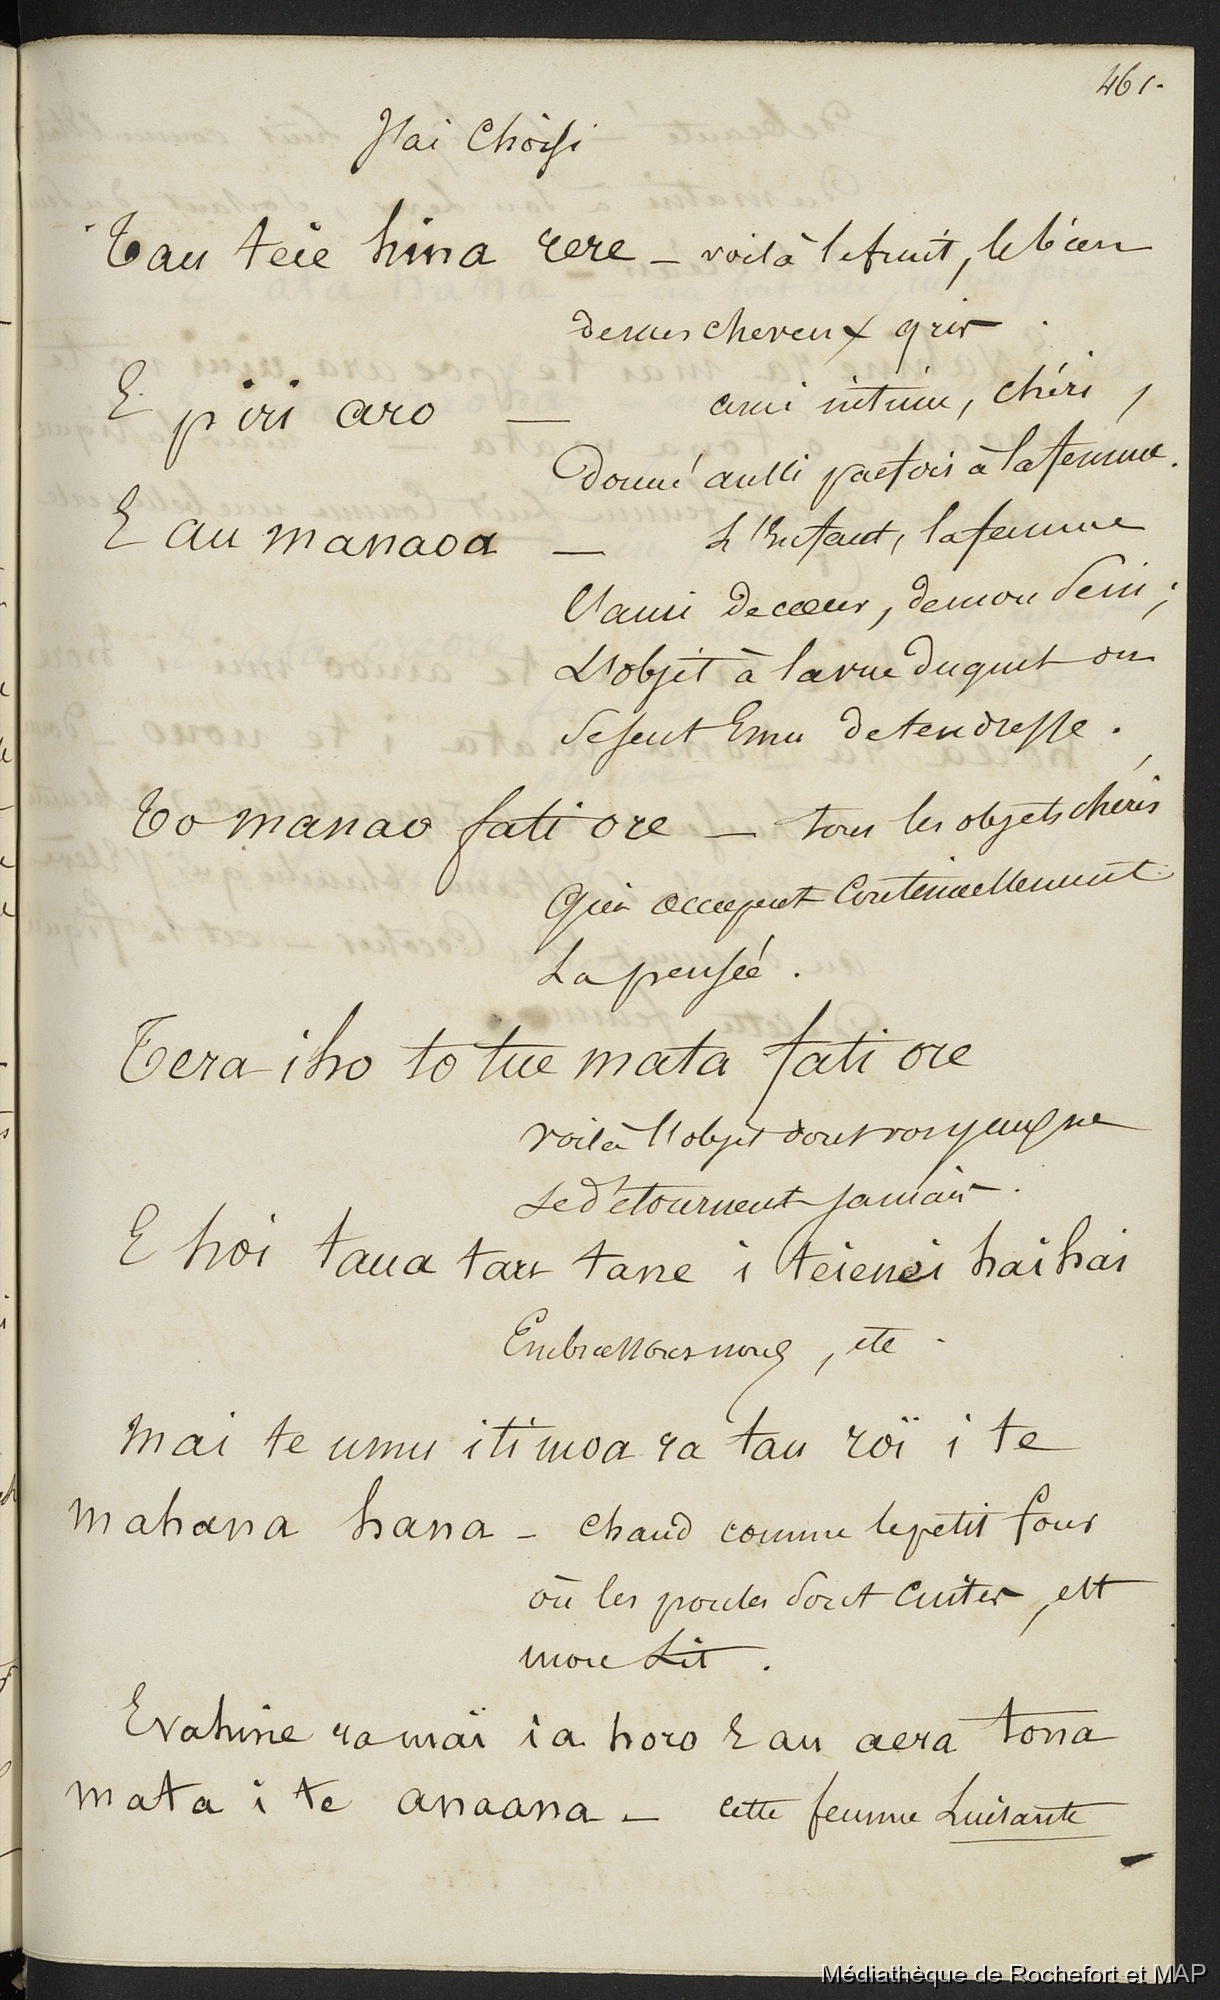 461.
J'ai choisi
Tau teie hina rere – voilà le fruit, le bien
de mes cheveux gris.
E piri aro – ami intime, chéri,
Donné aussi parfois à la femme.
E au manaoa – L'Enfant, la femme
l'ami de cœur, de mon sein;
L'objet à la vue duquel on
se sent Emu de tendresse.
To manao fati ore – tous les objets chéris
Qui occupent Continuellement
La pensée.
Tera iho to tue mata fati ore
voilà l'objet dont vos yeux ne
se détournent jamais.
E hoi taua tau tane i teienei haihai
Embrassons nous, etc.
Mai te umu iti moa ra tau roï i te
mahana hana – chaud comme le petit four
où les poules sont cuites, est
mon Lit.
E vahine ra maï ia horo E au aera tona
mata i te anaana – cette femme Luisante
Médiathèque de Rochefort et MAP